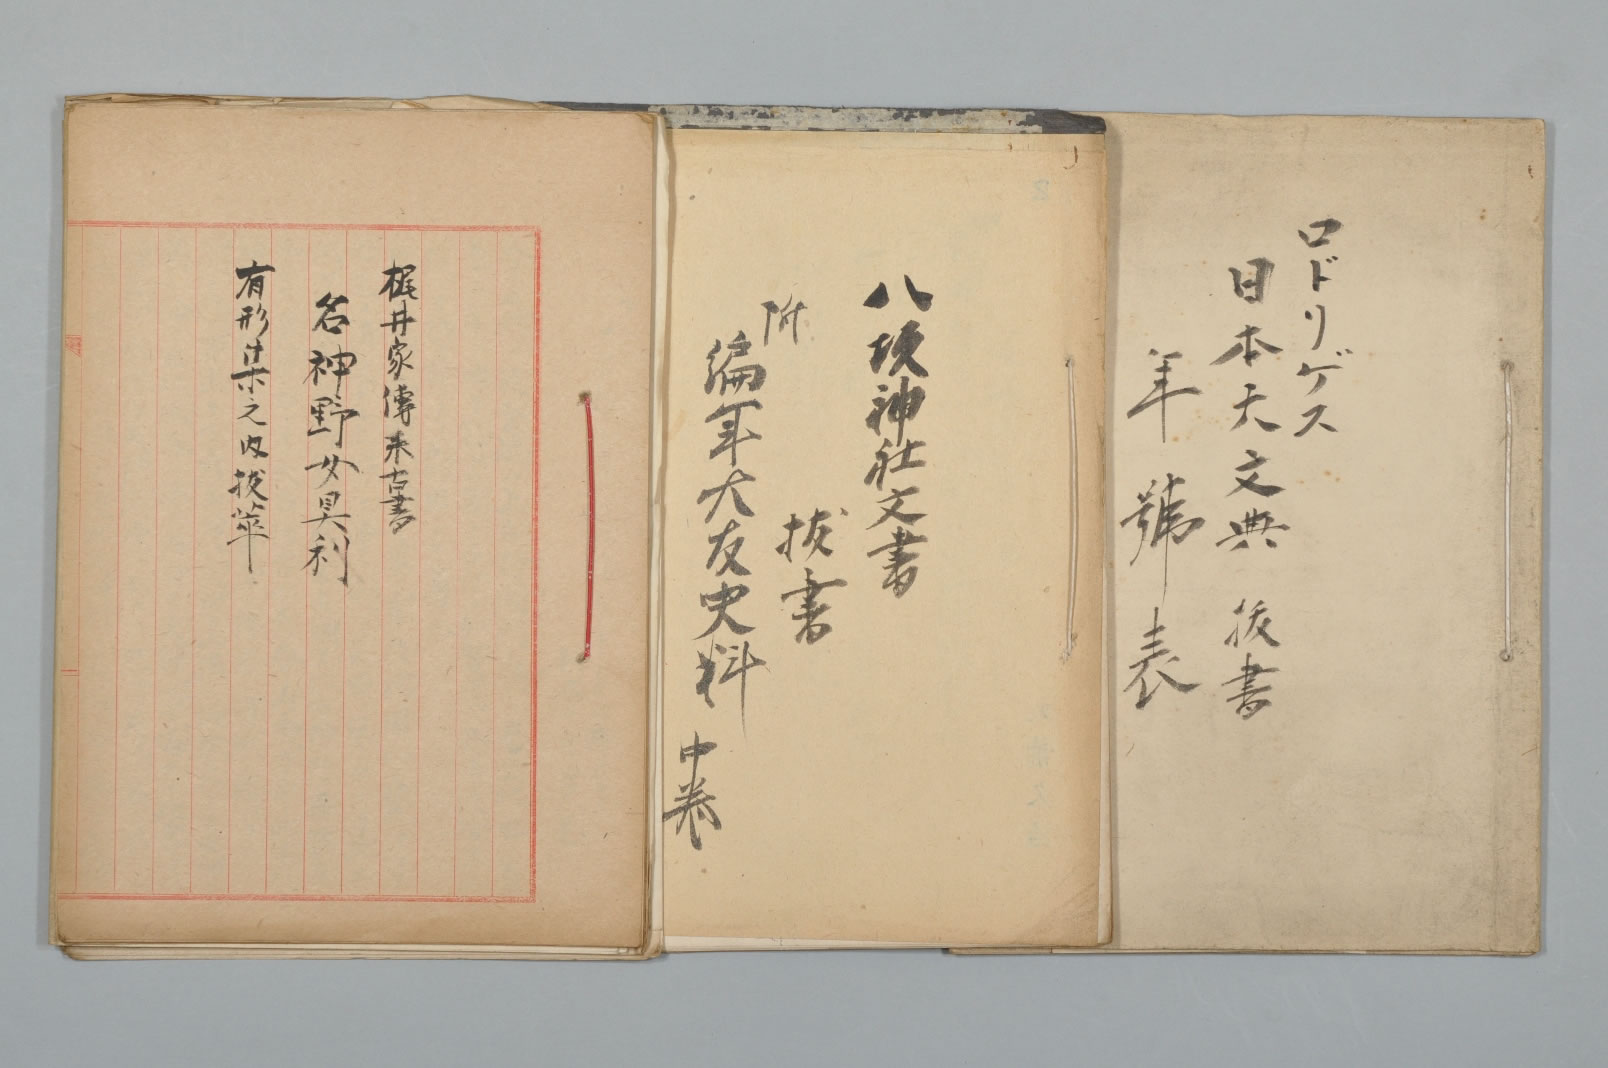 ロドリゲス
日本天文典 抜書
年號表
八坂神社文書
抜書
附
編年大友史料
中巻
梶井家傳来古書
名神野女具利
有形集之内抜萃